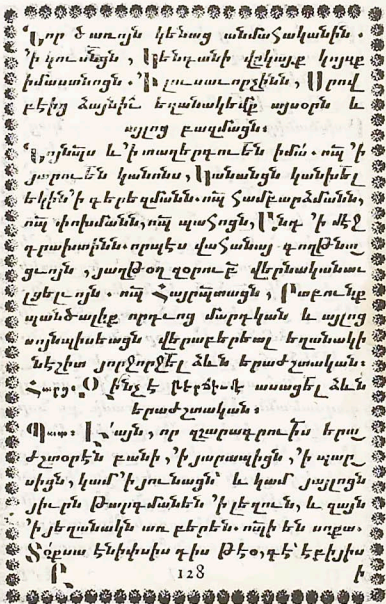 Նոր ծառոյն կենաց անմահականին .
՛ի կուսեցն , Կենդանի վըկայք կոյսք
իմաստանոցն . Ի լուսաւորչինն , Սրով
բէից ձայնիւ եղանակեմք այսօրն և
այլոց բազմացն :
Նոյնպէս և ՛ի տաղերգութեն իմա՛ . ոպ ՛ի
յարութեն կանոնս , Կանանցն կանխել
եկին ՛ի գերեզմանն . ոպ համբարձմանն ,
ոպ փոխմանն , ոպ պահոցն , Ընդ ՛ի մէջ
դրախտինն . որպէս վահանայ գողթնա
ցւոյն , յաղթօղ զօրութբ վերնականաւ
լցելւոյն . ոպ Հայրպտացն , Րաբունք
պանծալիք որդւոց մարդկան և այլոց
այնպիսեացն վերաբերեալ եղանակի
նէշիտ յորջորջել ձևն երաժշտական :
Հարց . ինչ է ասացել ձևն
երաժշտական :
Պատ . Է այն , որ զշարադրութիս երա
ժշտօրէն բանի , ՛ի յարապիցն , ՛ի պար
սիցն , կամ ՛ի յունացն՝ և կամ յայլոցն
յիւրն թարգմանեն ՛ի լեզուն , և զայն
՛ի յեղանակն առ բերեն . ոպի են սոքա .
Տօքսա ենիփսիս դիս թէօ , դէ՛ էքիյիս
128 ի